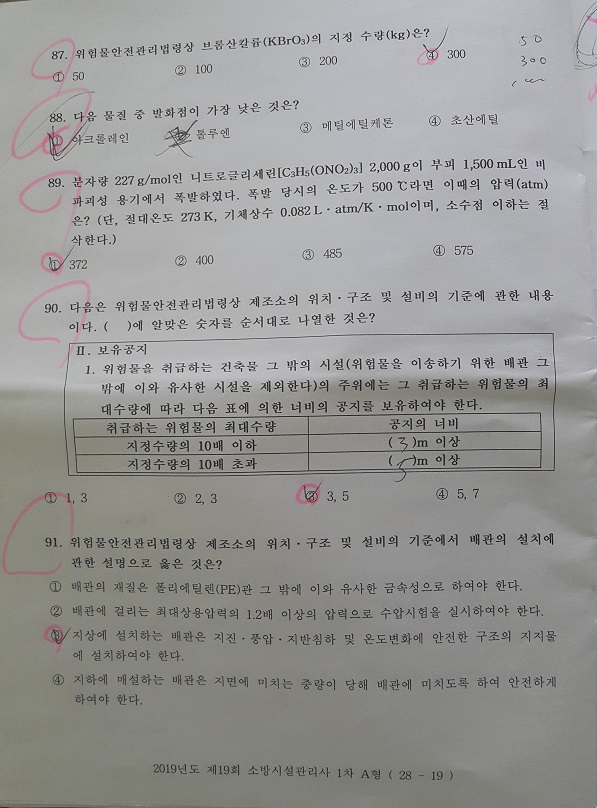 87. 위험물안전관리법령상 브롬산칼륨(KBrO₃)의 지정 수량(kg)은?
① 50 ② 100 ③ 200 ④ 300
50
300
88. 다음 물질 중 발화점이 가장 낮은 것은?
① 아크롤레인 ② 톨루엔 ③ 메틸에틸케톤 ④ 초산에틸
89. 분자량 227 g/mol인 니트로글리세린[C₃H₅(ONO₂)₃] 2,000 g이 부피 1,500 mL인 비
파괴성 용기에서 폭발하였다. 폭발 당시의 온도가 500 ℃라면 이때의 압력(atm)
은? (단, 절대온도 273 K, 기체상수 0.082 L · atm/K · mol이며, 소수점 이하는 절
삭한다.)
① 372 ② 400 ③ 485 ④ 575
90. 다음은 위험물안전관리법령상 제조소의 위치 · 구조 및 설비의 기준에 관한 내용
이다. ( )에 알맞은 숫자를 순서대로 나열한 것은?
Ⅱ. 보유공지
1. 위험물을 취급하는 건축물 그 밖의 시설(위험물을 이송하기 위한 배관 그
밖에 이와 유사한 시설을 제외한다)의 주위에는 그 취급하는 위험물의 최
대수량에 따라 다음 표에 의한 너비의 공지를 보유하여야 한다.
취급하는 위험물의 최대수량 공지의 너비
지정수량의 10배 이하 (3)m 이상
지정수량의 10배 초과 (5)m 이상
① 1, 3 ② 2, 3 ③ 3, 5 ④ 5, 7
91. 위험물안전관리법령상 제조소의 위치 · 구조 및 설비의 기준에서 배관의 설치에
관한 설명으로 옳은 것은?
① 배관의 재질은 폴리에틸렌(PE)관 그 밖에 이와 유사한 금속성으로 하여야 한다.
② 배관에 걸리는 최대상용압력의 1.2배 이상의 압력으로 수압시험을 실시하여야 한다.
③ 지상에 설치하는 배관은 지진 · 풍압 · 지반침하 및 온도변화에 안전한 구조의 지지물
에 설치하여야 한다.
④ 지하에 매설하는 배관은 지면에 미치는 중량이 당해 배관에 미치도록 하여 안전하게
하여야 한다.
2019년도 제19회 소방시설관리사 1차 A형 ( 28 - 19 )